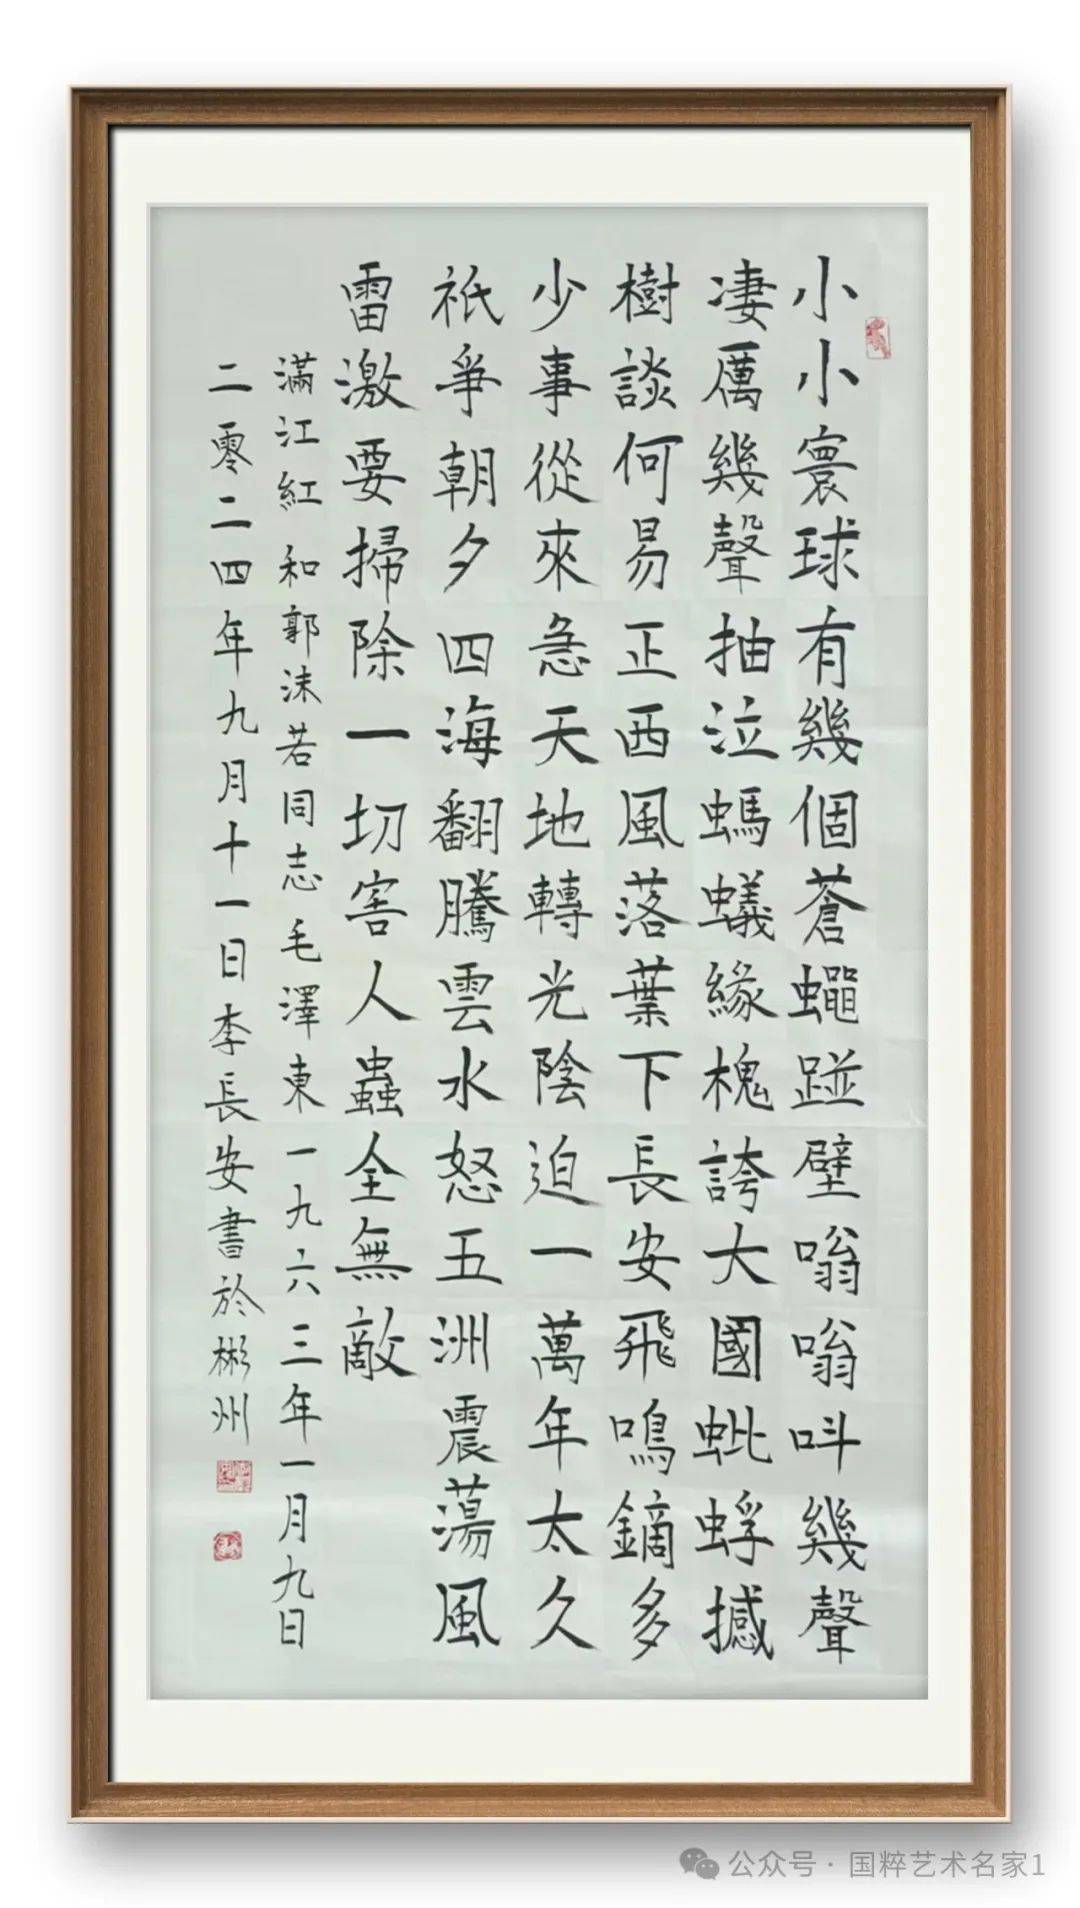 小小寰球有幾個蒼蠅踫壁嗡嗡叫幾聲
凄厲幾聲抽泣螞蟻緣槐誇大國蚍蜉撼
樹談何易正西風落葉下長安飛鳴鏑多
少事從來急天地轉光陰迫一萬年太久
祇爭朝夕四海翻騰雲水怒五洲震蕩風
雷激要掃除一切害人蟲全無敵
滿江紅 和郭沫若同志 毛澤東 一九六三年一月九日
二零二四年九月十一日李長安書於彬州
公众号 · 国粹艺术名家1